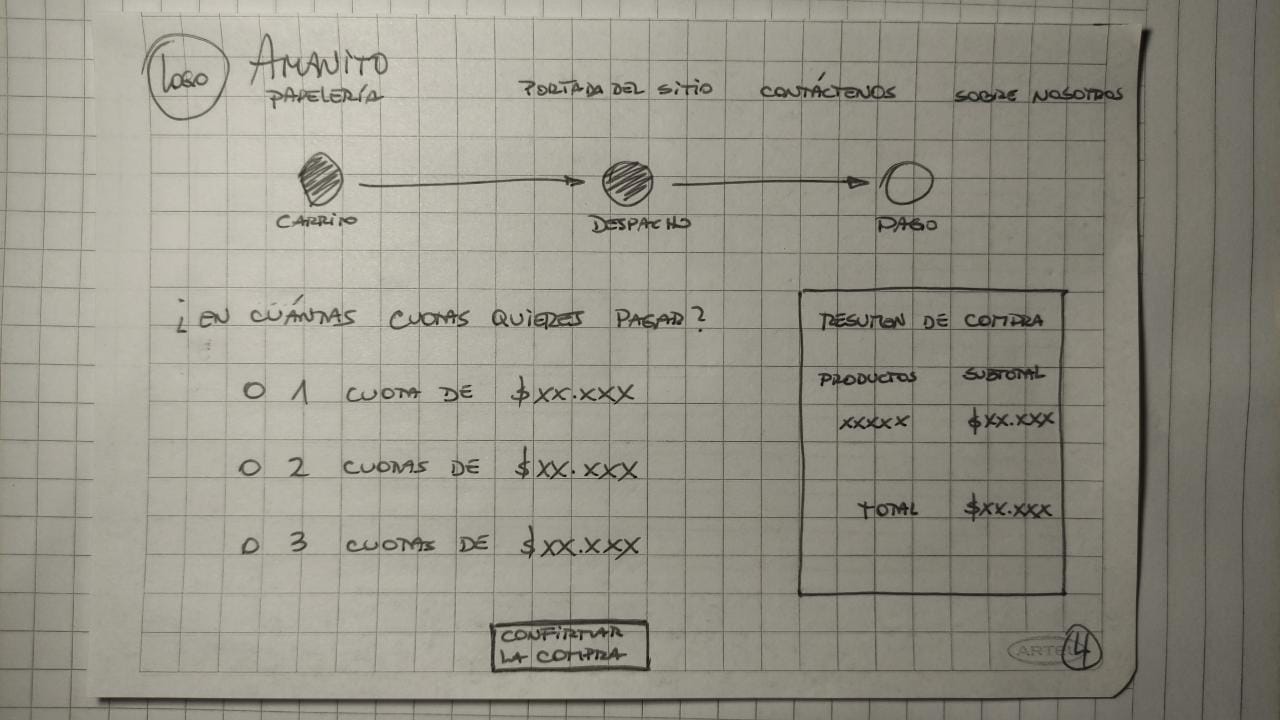 LOGO
AMANITO
PAPELERÍA
PORTADA DEL SITIO CONTÁCTENOS SOBRE NOSOTROS
CARRITO DESPACHO PAGO
¿EN CUÁNTAS CUOTAS QUIERES PAGAR?
O 1 CUOTA DE $XX.XXX
O 2 CUOTAS DE $XX.XXX
O 3 CUOTAS DE $XX.XXX
CONFIRMAR
LA COMPRA
RESUMEN DE COMPRA
PRODUCTOS SUBTOTAL
XXXXX $XX.XXX
TOTAL $XX.XXX
4